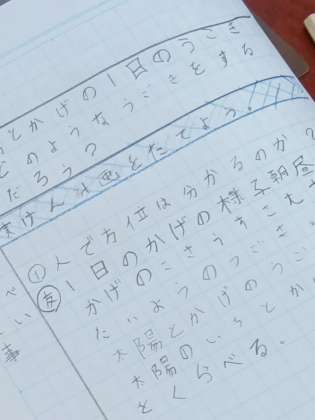 とかげの1日のうごき
どのようなうごきをする
だろう？
実けん計画をたてよう！！
①人で方位は分かるのか？
1日のかげの様子朝昼
かげのこさうすこむ
たいようのうごき
太陽とかげのうご
太陽のいちとか
とくらべる。
べ
い
事